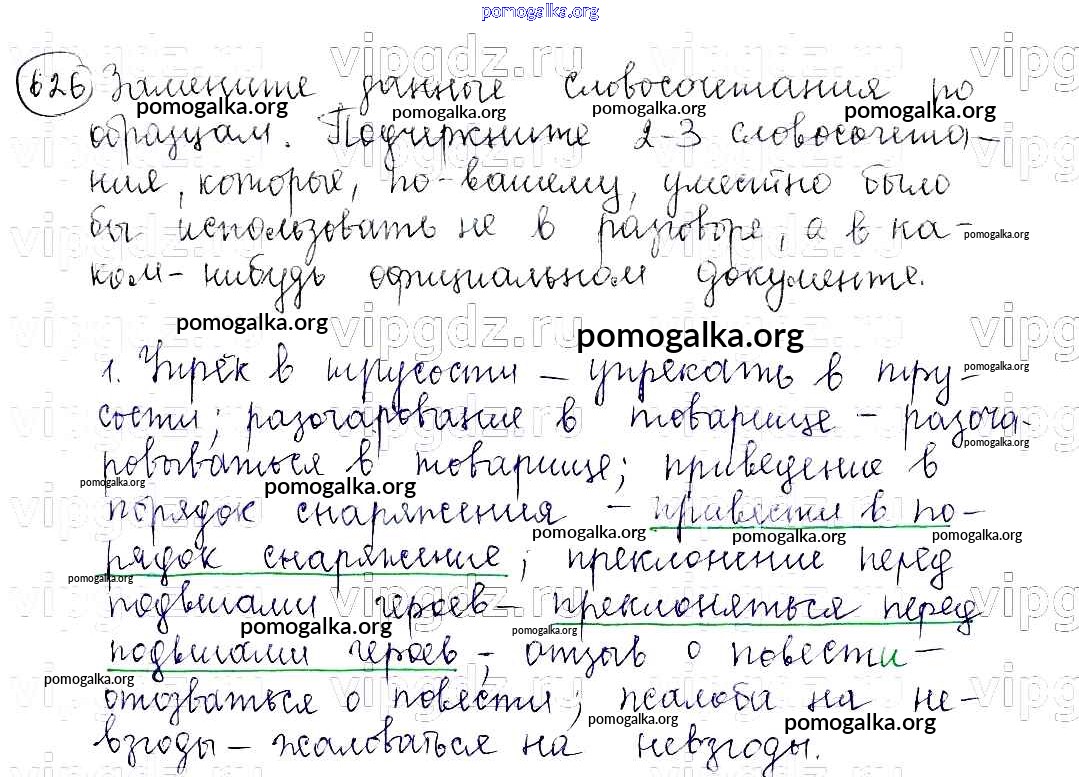 pomogalka.org
626 Замените данные словосочетания по
образцам. Подчеркните 2-3 словосочета-
ния, которые, по-вашему, уместно было
бы использовать не в разговоре, а в ка-
ком-нибудь официальном документе.
1. Упрёк в трусости - упрекать в тру-
сости; разочарование в товарище - разоча-
ровываться в товарище; приведение в
порядок снаряжения - привести в по-
рядок снаряжение; преклонение перед
подвигами героев - преклоняться перед
подвигами героев; отзыв о повести -
отозваться о повести; жалоба на не-
взгоды - жаловаться на невзгоды.